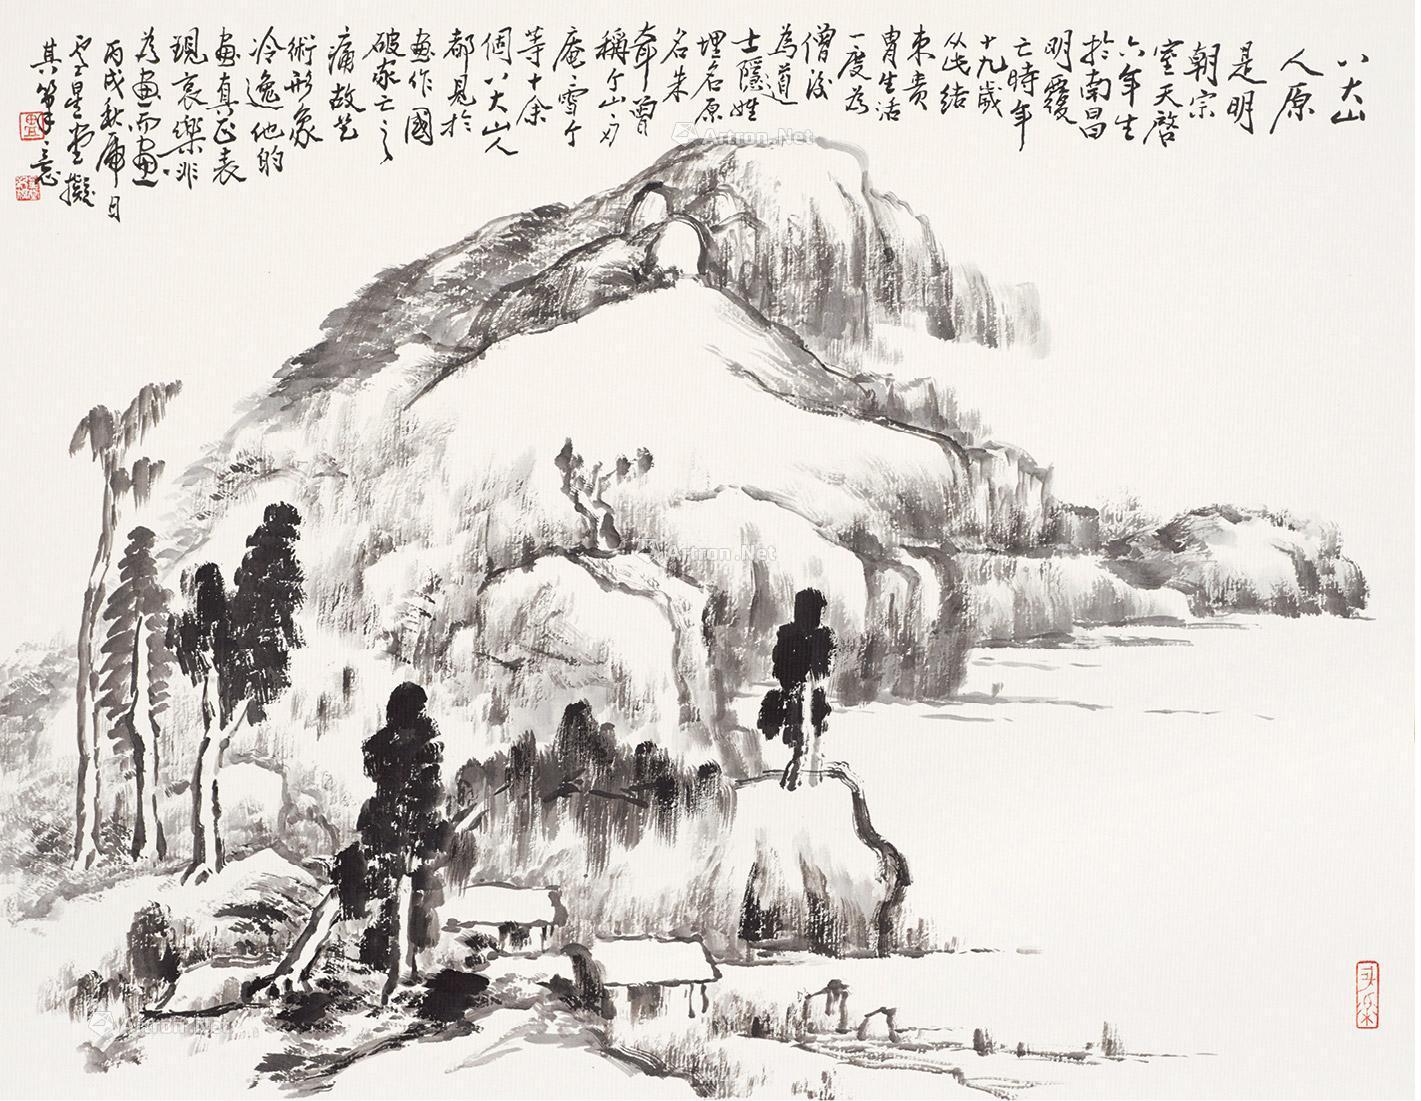 八大山
人原
是明
朝宗
室天啓
六年生
於南昌
明覆
亡時年
十九歲
从此結
束貴
胄生活
一度為
僧後
為道
士隱姓
埋名原
名朱
耷曾
稱个山
庵雪个
等十余
個八大山人
都見於
畫作國
破家亡之
痛故艺
術形象
冷逸他的
畫真正表
現哀樂非
為畫而畫
丙戌秋
星堂擬
其筆意
Artron.Net
Artron.Net
Artron.Net
Artron.Net
Artron.Net
Artron.Net